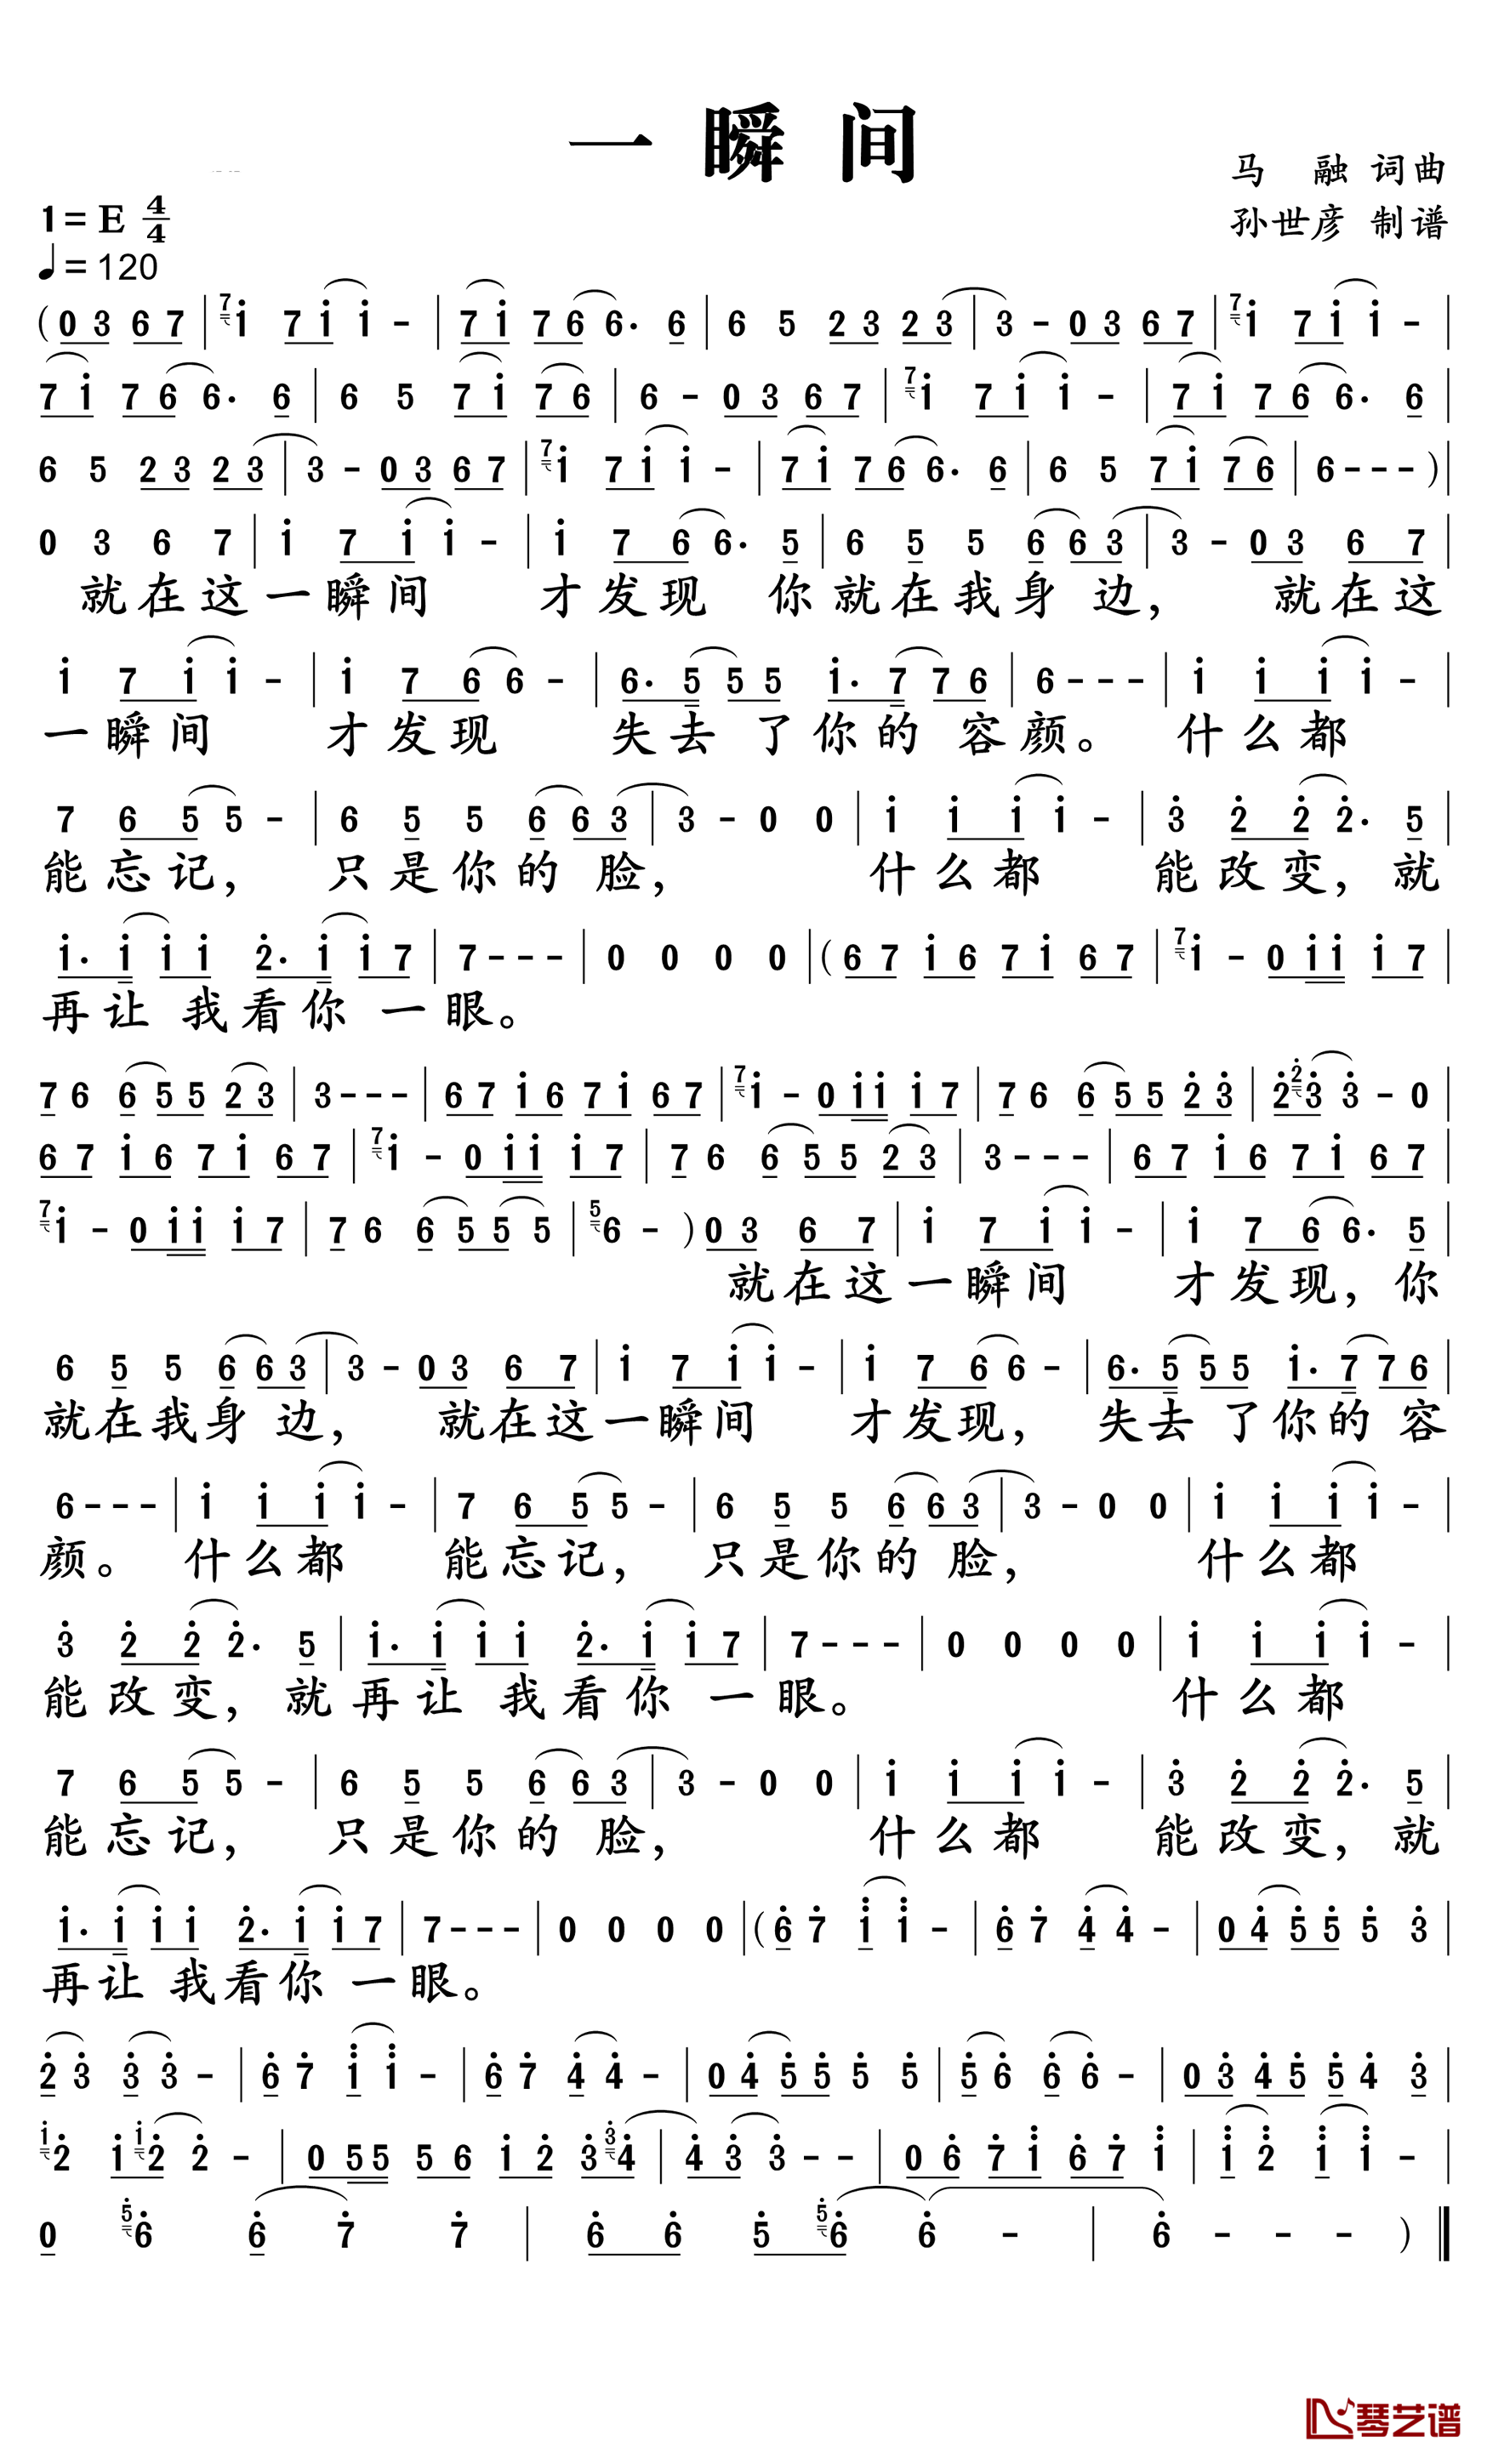 一瞬间
马 融 词曲
1= E 4/4
孙世彦 制谱
♩= 120
(0 3 6 7 | 7 i 7 i i - | 7 i 7 6 6. 6 | 6 5 2 3 2 3 | 3 - 0 3 6 7 | 7 i 7 i i - |
7 i 7 6 6. 6 | 6 5 7 i 7 6 | 6 - 0 3 6 7 | 7 i 7 i i - | 7 i 7 6 6. 6 |
6 5 2 3 2 3 | 3 - 0 3 6 7 | 7 i 7 i i - | 7 i 7 6 6. 6 | 6 5 7 i 7 6 | 6 - - - ) |
0 3 6 7 | i 7 i i - | i 7 6 6. 5 | 6 5 5 6 6 3 | 3 - 0 3 6 7 |
就在这一瞬间 才发现 你就在我身 边， 就在这
i 7 i i - | i 7 6 6 - | 6. 5 5 5 i. 7 7 6 | 6 - - - | i i i i - |
一瞬间 才发现 失去 了你的 容颜。 什么都
7 6 5 5 - | 6 5 5 6 6 3 | 3 - 0 0 | i i i i - | 3̇ 2̇ 2̇ 2̇. 5 |
能忘记， 只是你的 脸， 什么都 能改变，就
i. i i i 2̇. i i 7 | 7 - - - | 0 0 0 0 | (6 7 i 6 7 i 6 7 | 7 i - 0 i i i 7 |
再让 我看你 一眼。
7 6 6 5 5 2 3 | 3 - - - | 6 7 i 6 7 i 6 7 | 7 i - 0 i i i 7 | 7 6 6 5 5 2̇ 3̇ | 2̇ 2̇ 3̇ 3̇ - 0 |
6 7 i 6 7 i 6 7 | 7 i - 0 i i i 7 | 7 6 6 5 5 2 3 | 3 - - - | 6 7 i 6 7 i 6 7 |
7 i - 0 i i i 7 | 7 6 6 5 5 5 | 5 6 - ) 0 3 6 7 | i 7 i i - | i 7 6 6. 5 |
就在这一瞬间 才发现，你
6 5 5 6 6 3 | 3 - 0 3 6 7 | i 7 i i - | i 7 6 6 - | 6. 5 5 5 i. 7 7 6 |
就在我身 边， 就在这一瞬间 才发现， 失去 了你的 容
6 - - - | i i i i - | 7 6 5 5 - | 6 5 5 6 6 3 | 3 - 0 0 | i i i i - |
颜。 什么都 能忘记， 只是你的 脸， 什么都
3̇ 2̇ 2̇ 2̇. 5 | i. i i i 2̇. i i 7 | 7 - - - | 0 0 0 0 | i i i i - |
能改变，就再让 我看你 一眼。 什么都
7 6 5 5 - | 6 5 5 6 6 3 | 3 - 0 0 | i i i i - | 3̇ 2̇ 2̇ 2̇. 5 |
能忘记， 只是你的 脸， 什么都 能改变，就
i. i i i 2̇. i i 7 | 7 - - - | 0 0 0 0 | (6̇ 7̇ 1̈ 1̈ - | 6̇ 7̇ 4̇ 4̇ - | 0 4̇ 5̇ 5̇ 5̇ 3̇ |
再让 我看你 一眼。
2̇ 3̇ 3̇ 3̇ - | 6̇ 7̇ 1̈ 1̈ - | 6̇ 7̇ 4̇ 4̇ - | 0 4̇ 5̇ 5̇ 5̇ 5̇ | 5̇ 6̇ 6̇ 6̇ - | 0 3̇ 4̇ 5̇ 5̇ 4̇ 3̇ |
i 2̇ i i 2̇ 2̇ - | 0 5 5 5 6 i 2̇ 3̇ 3̇ 4̇ | 4̇ 3̇ 3̇ - - | 0 6̇ 7̇ 1̈ 6̇ 7̇ 1̈ | 1̈ 2̈ 1̈ 1̈ - |
0 5̇ 6̇ 6̇ 7̇ 7̇ | 6̇ 6̇ 5̇ 5̇ 6̇ 6̇ - | 6̇ - - - )
琴艺谱